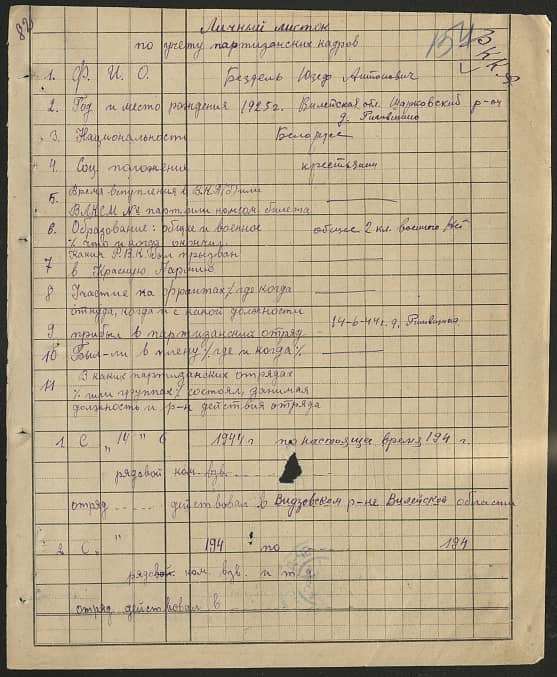 82
Личный листок
по учету партизанских кадров
154
1. Ф. И. О. Бездель Юзеф Антонович
2. Год и место рождения 1925г. Вилейская обл. Шарковский р-он
д.
3. Национальность Беларус
4. Соц положения крестьянин
5. Время вступления в ВКП(б) или
ВЛКСМ № парт или комсом. билета
6. Образование: общее и военное общее 2 кл. военого нет
% что и когда окончил
7 Каким Р.В.К. был призван
в Красную Армию
8 Участие на фронтах % где когда
откуда, когда и с какой должности
9 прибыл в партизанский отряд 14-6-44 г. д.
10 Был-ли в плену % где и когда %
11 В каких партизанских отрядах
% или группах % состоял, занимая
должность и р-н действия отряда
1. С „14" 6 1944 г по настояща время 194 г.
рядовой ком. взв.
отряд ..... действовал в Видзовском р-не Вилейской области
2. С „ " 194 : по 194
рядовой ком. взв. и т.д.
отряд действовал в